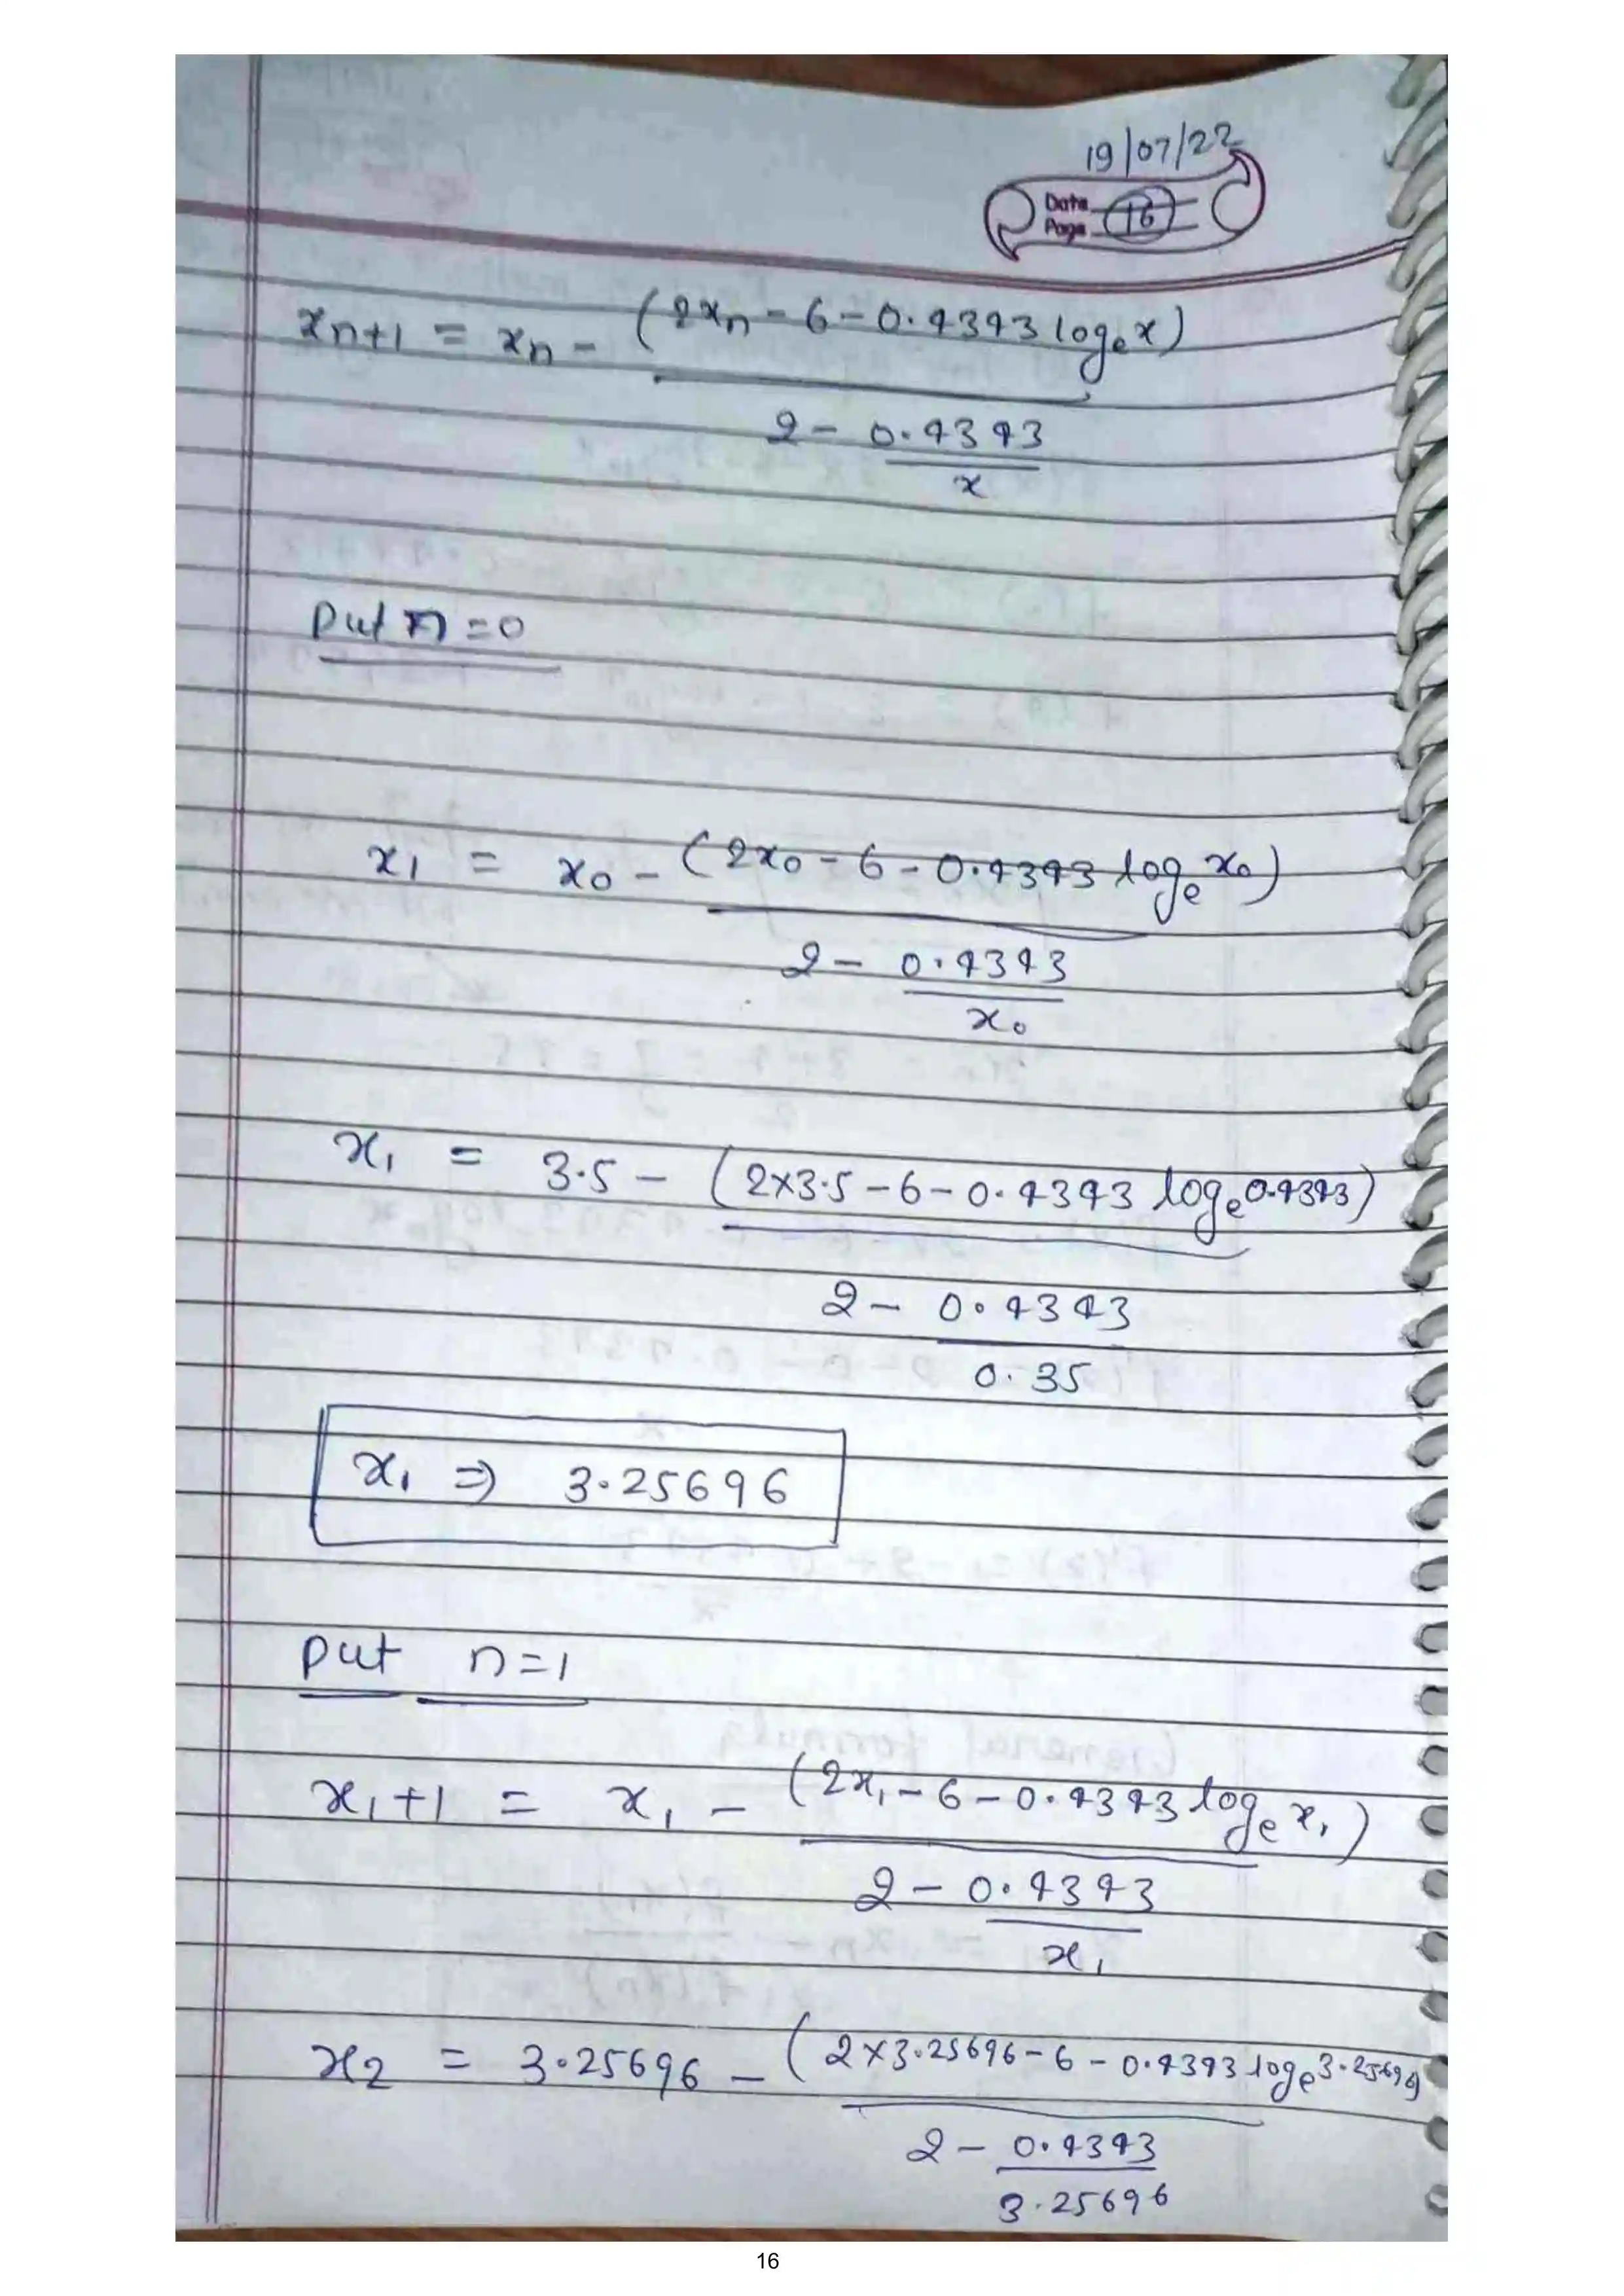 19/07/22
Date
Page 16
xn+1 = xn - (2xn - 6 - 0.4343 loge x)
2 - 0.4343
x
Put n = 0
x1 = x0 - (2x0 - 6 - 0.4343 loge x0)
2 - 0.4343
x0
x1 = 3.5 - (2×3.5 - 6 - 0.4343 loge 0.4343)
2 - 0.4343
0.35
x1 ⇒ 3.25696
Put n=1
x1+1 = x1 - (2x1 - 6 - 0.4343 loge x1)
2 - 0.4343
x1
x2 = 3.25696 - (2×3.25696 - 6 - 0.4343 loge 3.25696)
2 - 0.4343
3.25696
16